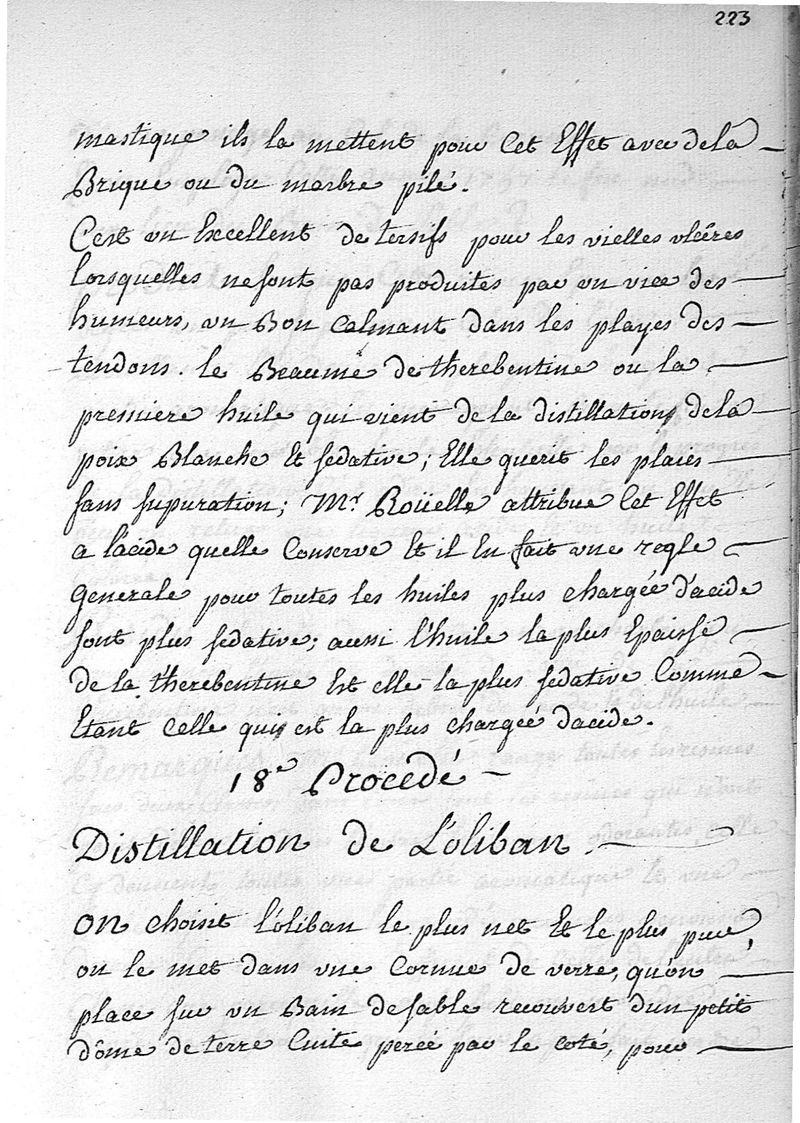 223
mastique ils la mettent pour Cet Effet avec dela
Brique ou du marbre pilé.
C'est un Excellent detersifs pour les vielles vlcéres
lorsquelles nesont pas produites par un vice des
humeurs, un Bon Calmant dans les playes des
tendons. le Beaume detherebentine ou la
premiere huile qui vient dela distillations dela
poix Blanche Et sedative; Elle querit les plaies
sans supuration; Mr Roüelle attribue Cet Effet
a lacide quelle Conserve Et il En fait une regle
Generale pour toutes les huiles plus chargée d'acide
sont plus sedative; aussi l'huile la plus Epaisse
de la therebentine Est elle la plus sedative Comme
Etant Celle qui est la plus chargée dacide.
18e Procedé
Distillation de L'oliban
on choisit l'oliban le plus net Et le plus pur,
on le met dans vne Cornue de verre, qu'on
place sur vn Bain desable recouvert d'un petit
dôme deterre Cuite percé par le coté, pour